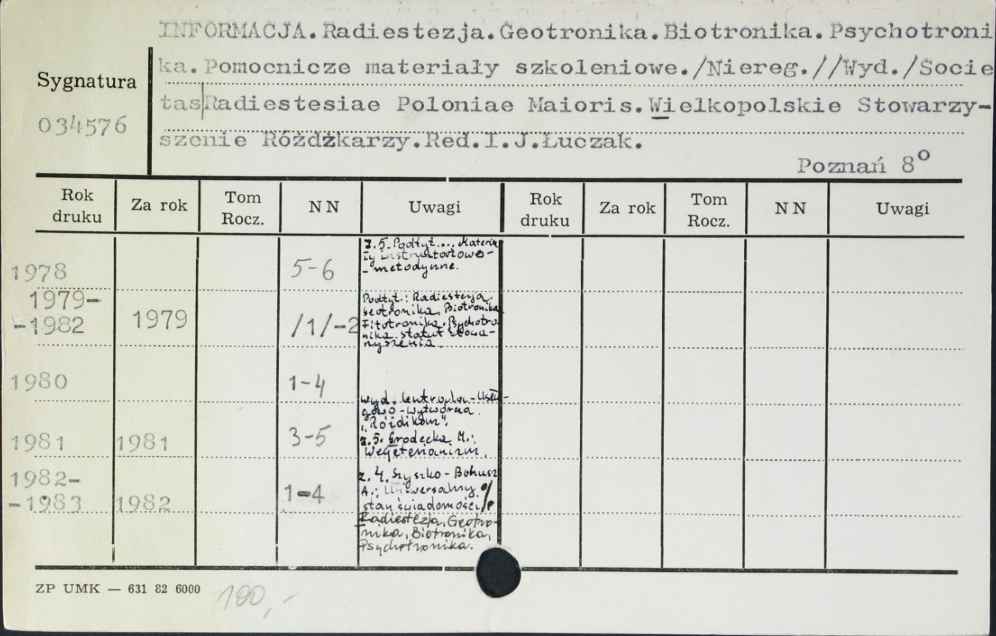 INFORMACJA.Radiestezja.Geotronika.Biotronika.Psychotroni
ka.Pomocnicze materiały szkoleniowe./Niereg.//Wyd./Socie
tas|Radiestesiae Poloniae Maioris.Wielkopolskie Stowarzy-
szenie Różdżkarzy.Red.I.J.Łuczak.
Poznań 8°
Sygnatura
034576
Rok druku Za rok Tom Rocz. NN Uwagi Rok druku Za rok Tom Rocz. NN Uwagi
1978 5-6
z.5. Podtyt... Materia
ły instruktażowo-
-metodyczne.
1979-
-1982 1979 /1/-2
Podtyt.: Radiestezja,
Geotronika, Biotronika
Fitotronika. Psychotro
nika. Statut Stowa-
rzyszenia.
1980 1-4
1981 1981 3-5
Wyd. Centrala Usłu-
gowo-Wytwórcza
z.5. Grodecka M.:
Wegetarianizm.
1982-
-1983 1982 1-4
z.4. Szyszko-Bohusz
A.: Uniwersalny
stan świadomości
Radiestezja, Geotro-
nika, Biotronika,
Psychotronika.
ZP UMK — 631 82 6000
100,-